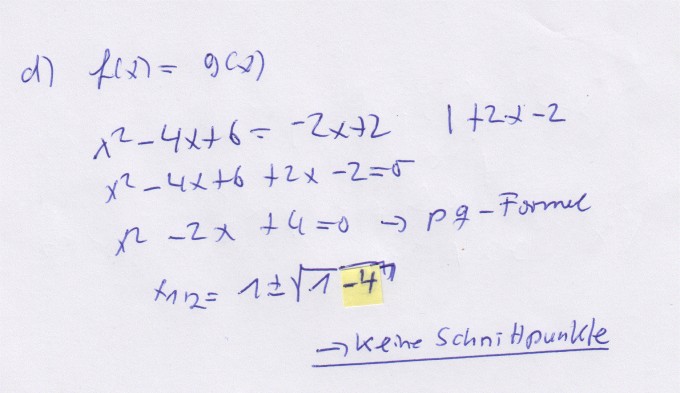 d) f(x) = g(x)
x² - 4x + 6 = -2x + 2 | +2x - 2
x² - 4x + 6 + 2x - 2 = 0
x² - 2x + 4 = 0 → pq-Formel
x1,2 = 1 ± √1 - 4
→ keine Schnittpunkte